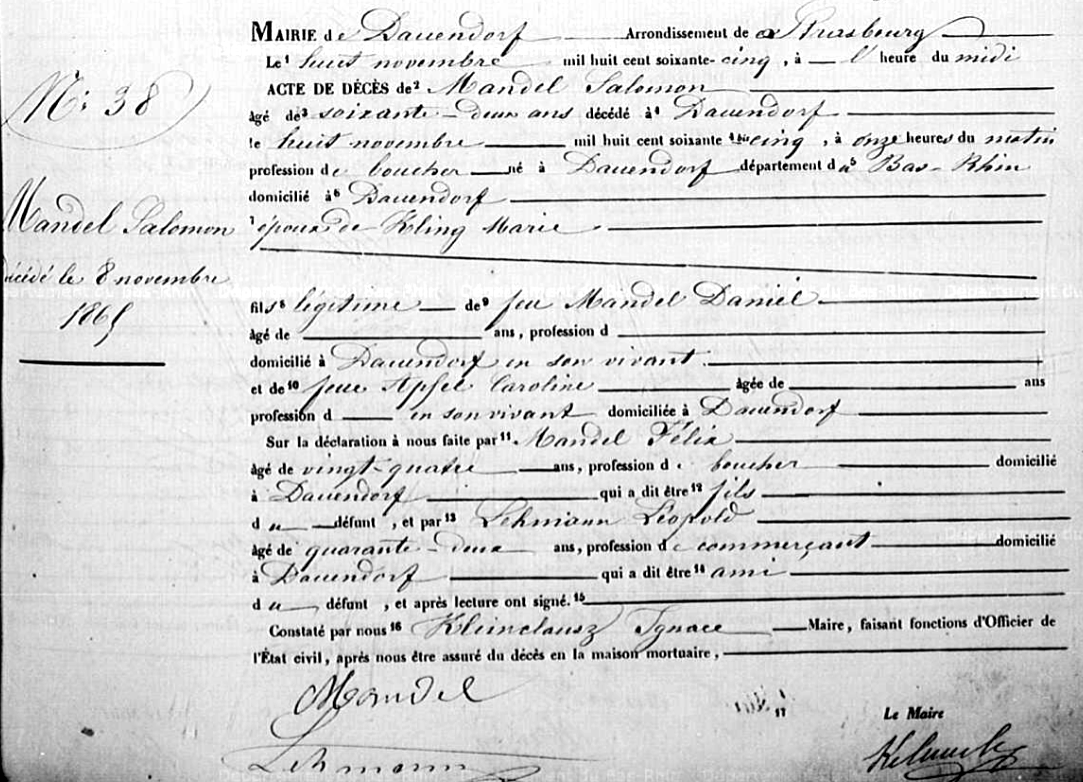 MAIRIE de Dauendorf Arrondissement de Strasbourg
Le¹ huit novembre mil huit cent soixante-cinq, à l'heure du midi
N: 38
ACTE DE DÉCÈS de² Mandel Salomon
âgé de³ soixante-deux ans décédé à⁴ Dauendorf
le huit novembre mil huit cent soixante cinq, à onze heures du matin
profession de boucher né à Dauendorf département d⁵ Bas-Rhin
domicilié à⁶ Dauendorf
Mandel Salomon
époux de Kling Marie
décédé le 8 novembre
1865
fils⁸ légitime de⁹ feu Mandel Daniel
âgé de ans, profession d
domicilié à Dauendorf en son vivant
et de¹⁰ feue Apfel Caroline âgée de ans
profession d en son vivant domiciliée à Dauendorf
Sur la déclaration à nous faite par¹¹ Mandel Félix
âgé de vingt-quatre ans, profession de boucher domicilié
à Dauendorf qui a dit être¹² fils
du défunt, et par¹³ Lehmann Léopold
âgé de quarante-deux ans, profession de commerçant domicilié
à Dauendorf qui a dit être¹⁴ ami
du défunt, et après lecture ont signé.¹⁵
Constaté par nous¹⁶ Kleinclausz Ignace Maire, faisant fonctions d'Officier de
l'État civil, après nous être assuré du décès en la maison mortuaire,
Mandel
17
Le Maire
Lehmann